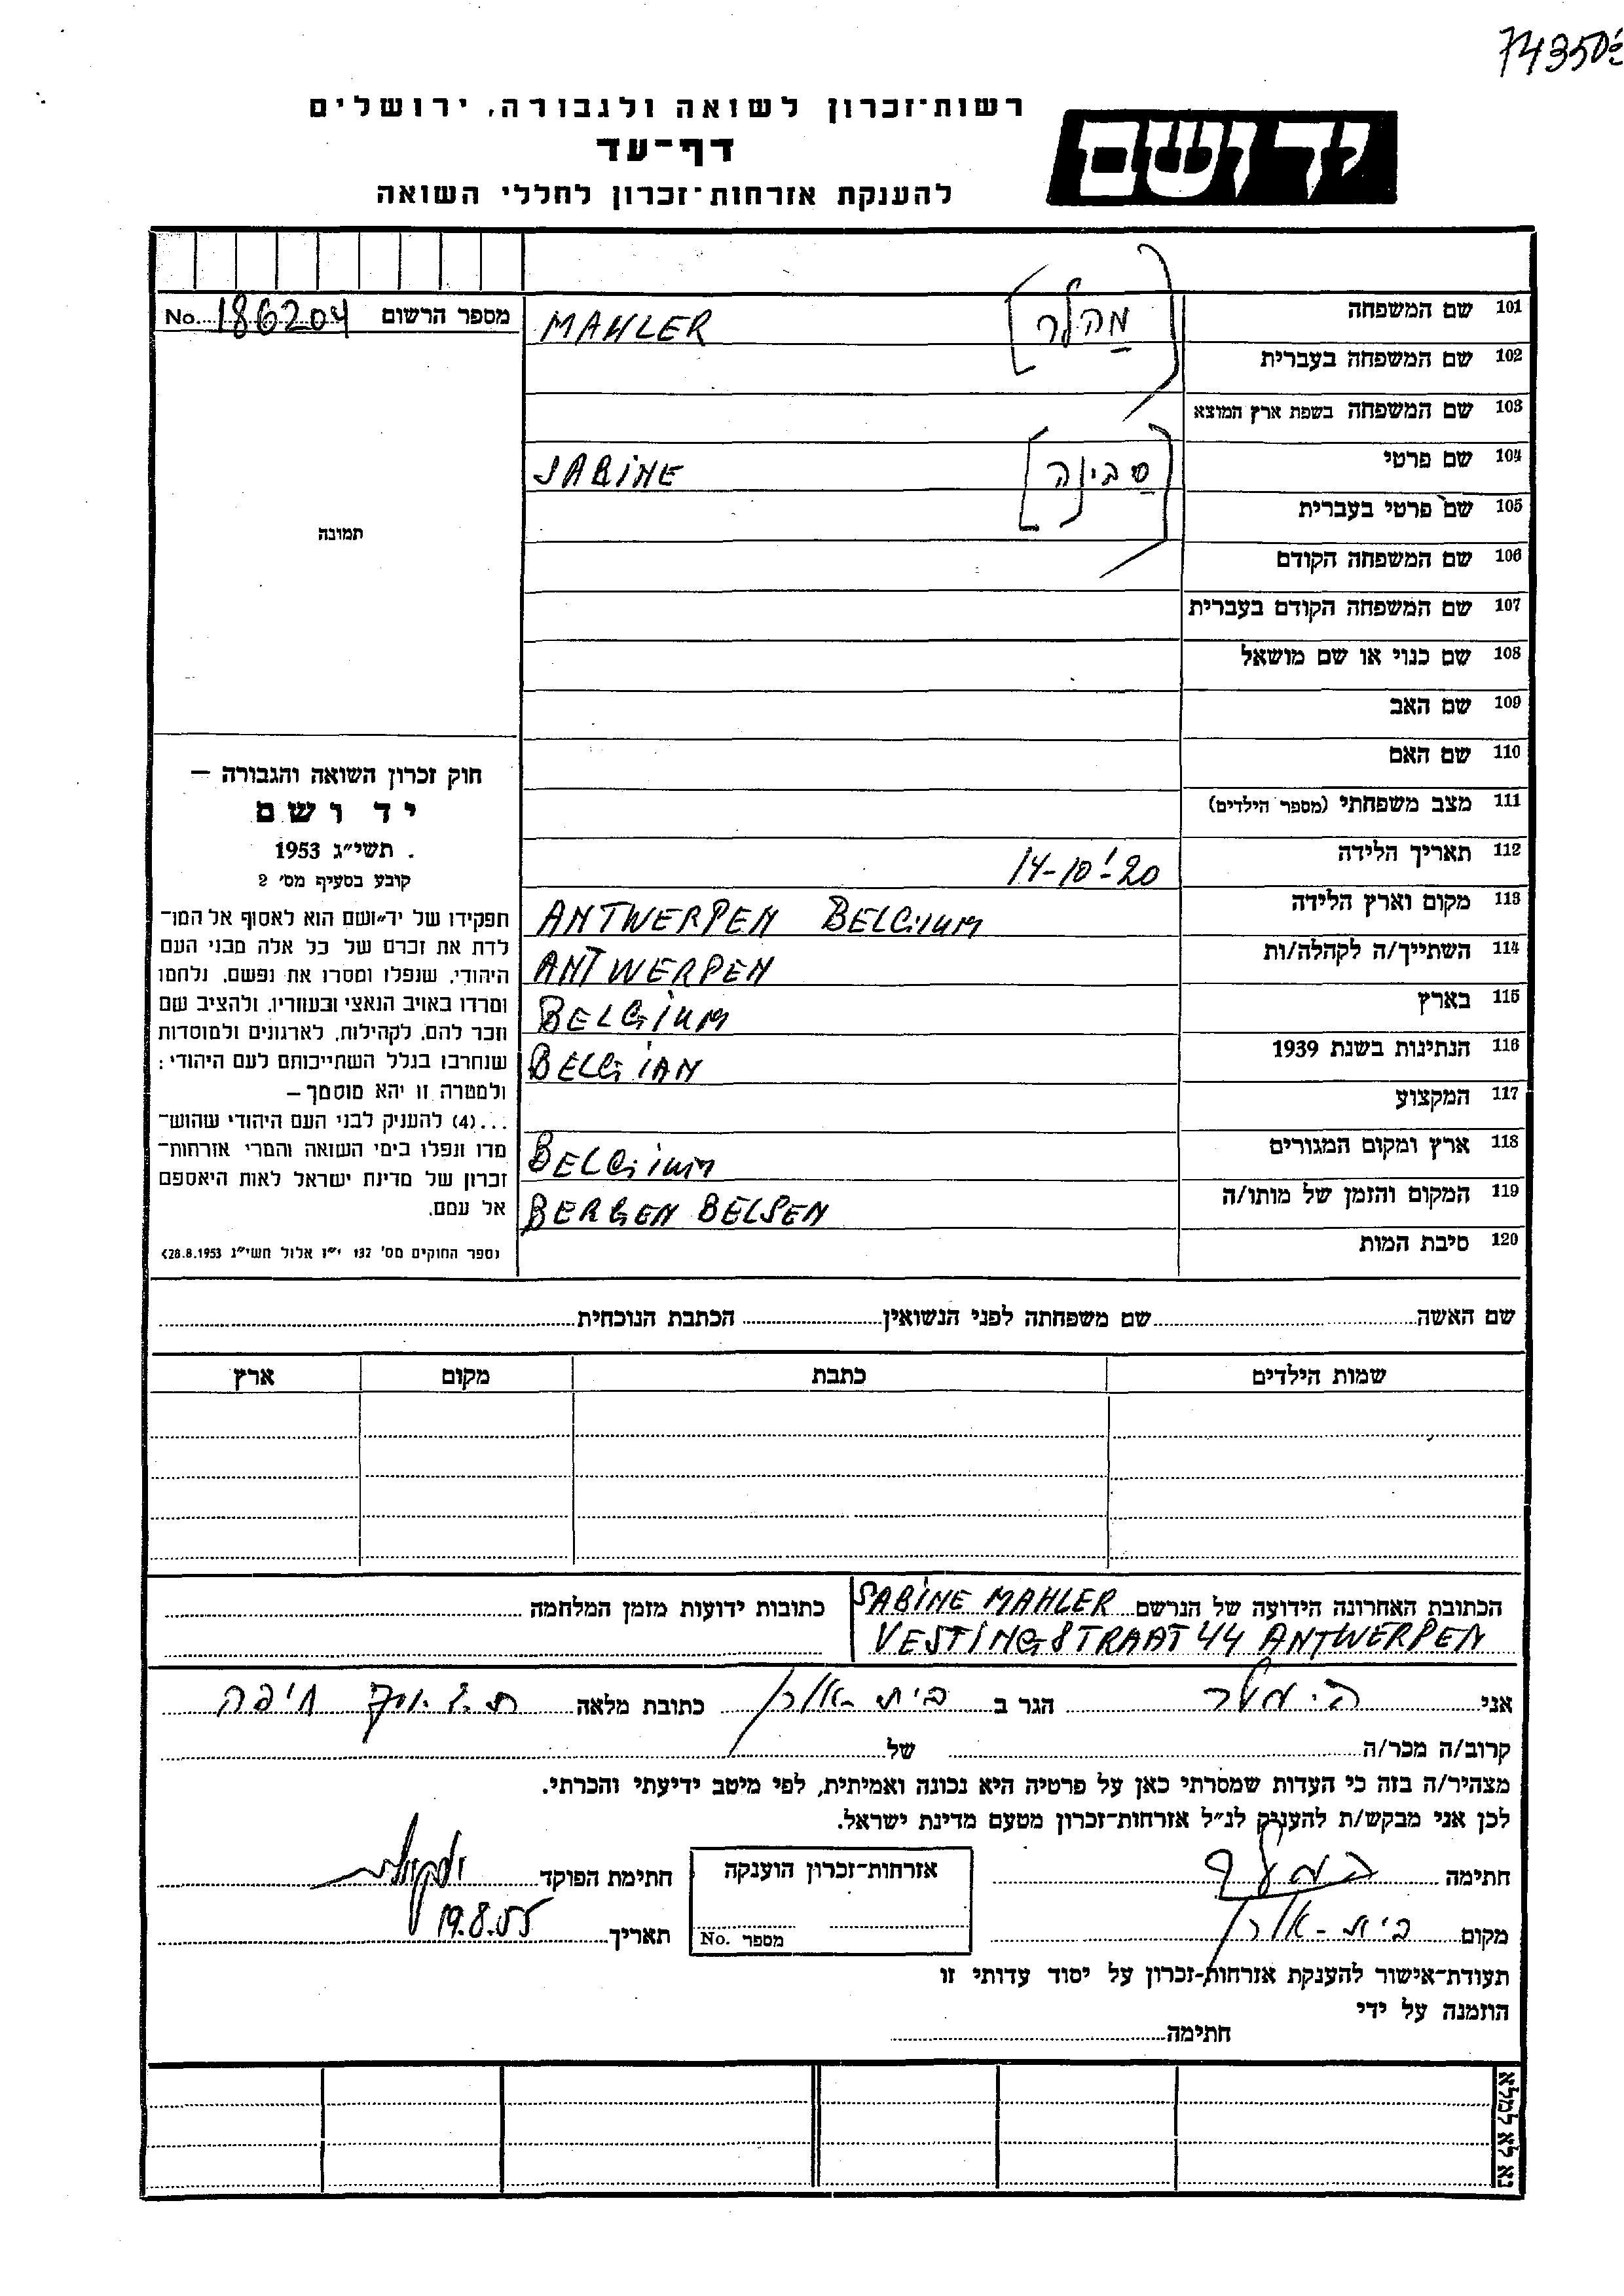 743503
רשות־זכרון לשואה ולגבורה, ירושלים
דף־עד
להענקת אזרחות־זכרון לחללי השואה
יד ושם
מספר הרשום No. 186204
תמונה
101 שם המשפחה MAHLER [מהלר]
102 שם המשפחה בעברית
103 שם המשפחה בשפת ארץ המוצא
104 שם פרטי SABINE [סבינה]
105 שם פרטי בעברית
106 שם המשפחה הקודם
107 שם המשפחה הקודם בעברית
108 שם כנוי או שם מושאל
109 שם האב
110 שם האם
111 מצב משפחתי (מספר הילדים)
112 תאריך הלידה 14-10-'20
113 מקום וארץ הלידה ANTWERPEN BELGIUM
114 השתייך/ה לקהלה/ות ANTWERPEN
115 בארץ BELGIUM
116 הנתינות בשנת 1939 BELGIAN
117 המקצוע
118 ארץ ומקום המגורים BELGIUM
119 המקום והזמן של מותו/ה BERGEN BELSEN
120 סיבת המות
חוק זכרון השואה והגבורה —
יד ושם
תשי״ג 1953
קובע בסעיף מס׳ 2
תפקידו של יד־ושם הוא לאסוף אל המו־
לדת את זכרם של כל אלה מבני העם
היהודי, שנפלו ומסרו את נפשם, נלחמו
ומרדו באויב הנאצי ובעוזריו, ולהציב שם
וזכר להם, לקהילות, לארגונים ולמוסדות
שנחרבו בגלל השתייכותם לעם היהודי;
ולמטרה זו יהא מוסמך —
...(4) להעניק לבני העם היהודי שהוש־
מדו ונפלו בימי השואה והמרי אזרחות־
זכרון של מדינת ישראל לאות היאספם
אל עמם.
(ספר החוקים מס׳ 132 י״ז אלול תשי״ג 28.8.1953)
שם האשה שם משפחתה לפני הנשואין הכתבת הנוכחית
שמות הילדים כתבת מקום ארץ
הכתובת האחרונה הידועה של הנרשם SABINE MAHLER
VESTINGSTRAAT 44 ANTWERPEN
כתובות ידועות מזמן המלחמה
אני הגר ב כתובת מלאה חיפה
קרוב/ה מכר/ה של
מצהיר/ה בזה כי העדות שמסרתי כאן על פרטיה היא נכונה ואמיתית, לפי מיטב ידיעתי והכרתי.
לכן אני מבקש/ת להעניק לנ״ל אזרחות־זכרון מטעם מדינת ישראל.
חתימה אזרחות־זכרון הוענקה חתימת הפוקד
מקום מספר No. תאריך 19.8.55
תעודת־אישור להענקת אזרחות־זכרון על יסוד עדותי זו
הוזמנה על ידי
חתימה
נא לא למלא